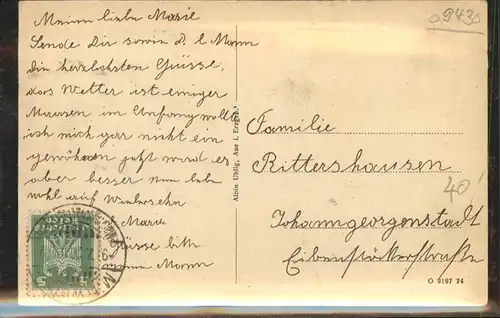 Meine liebe Marie
Sende Dir sowie d. l. Mann
die herzlichsten Grüsse,
das Wetter ist einiger
Maasen im Anfang wollt
ich mich gar nicht ein
gewöhnen jetzt wird es
aber besser nun lebe
wohl auf Wiedersehn
Marie
Grüsse bitte
Mann
Alwin Uhlig, Aue i. Erzgeb.
09430
Familie
Rittershausen
40
Johanngeorgenstadt
Eibenstöckerstraße
O 9197 24